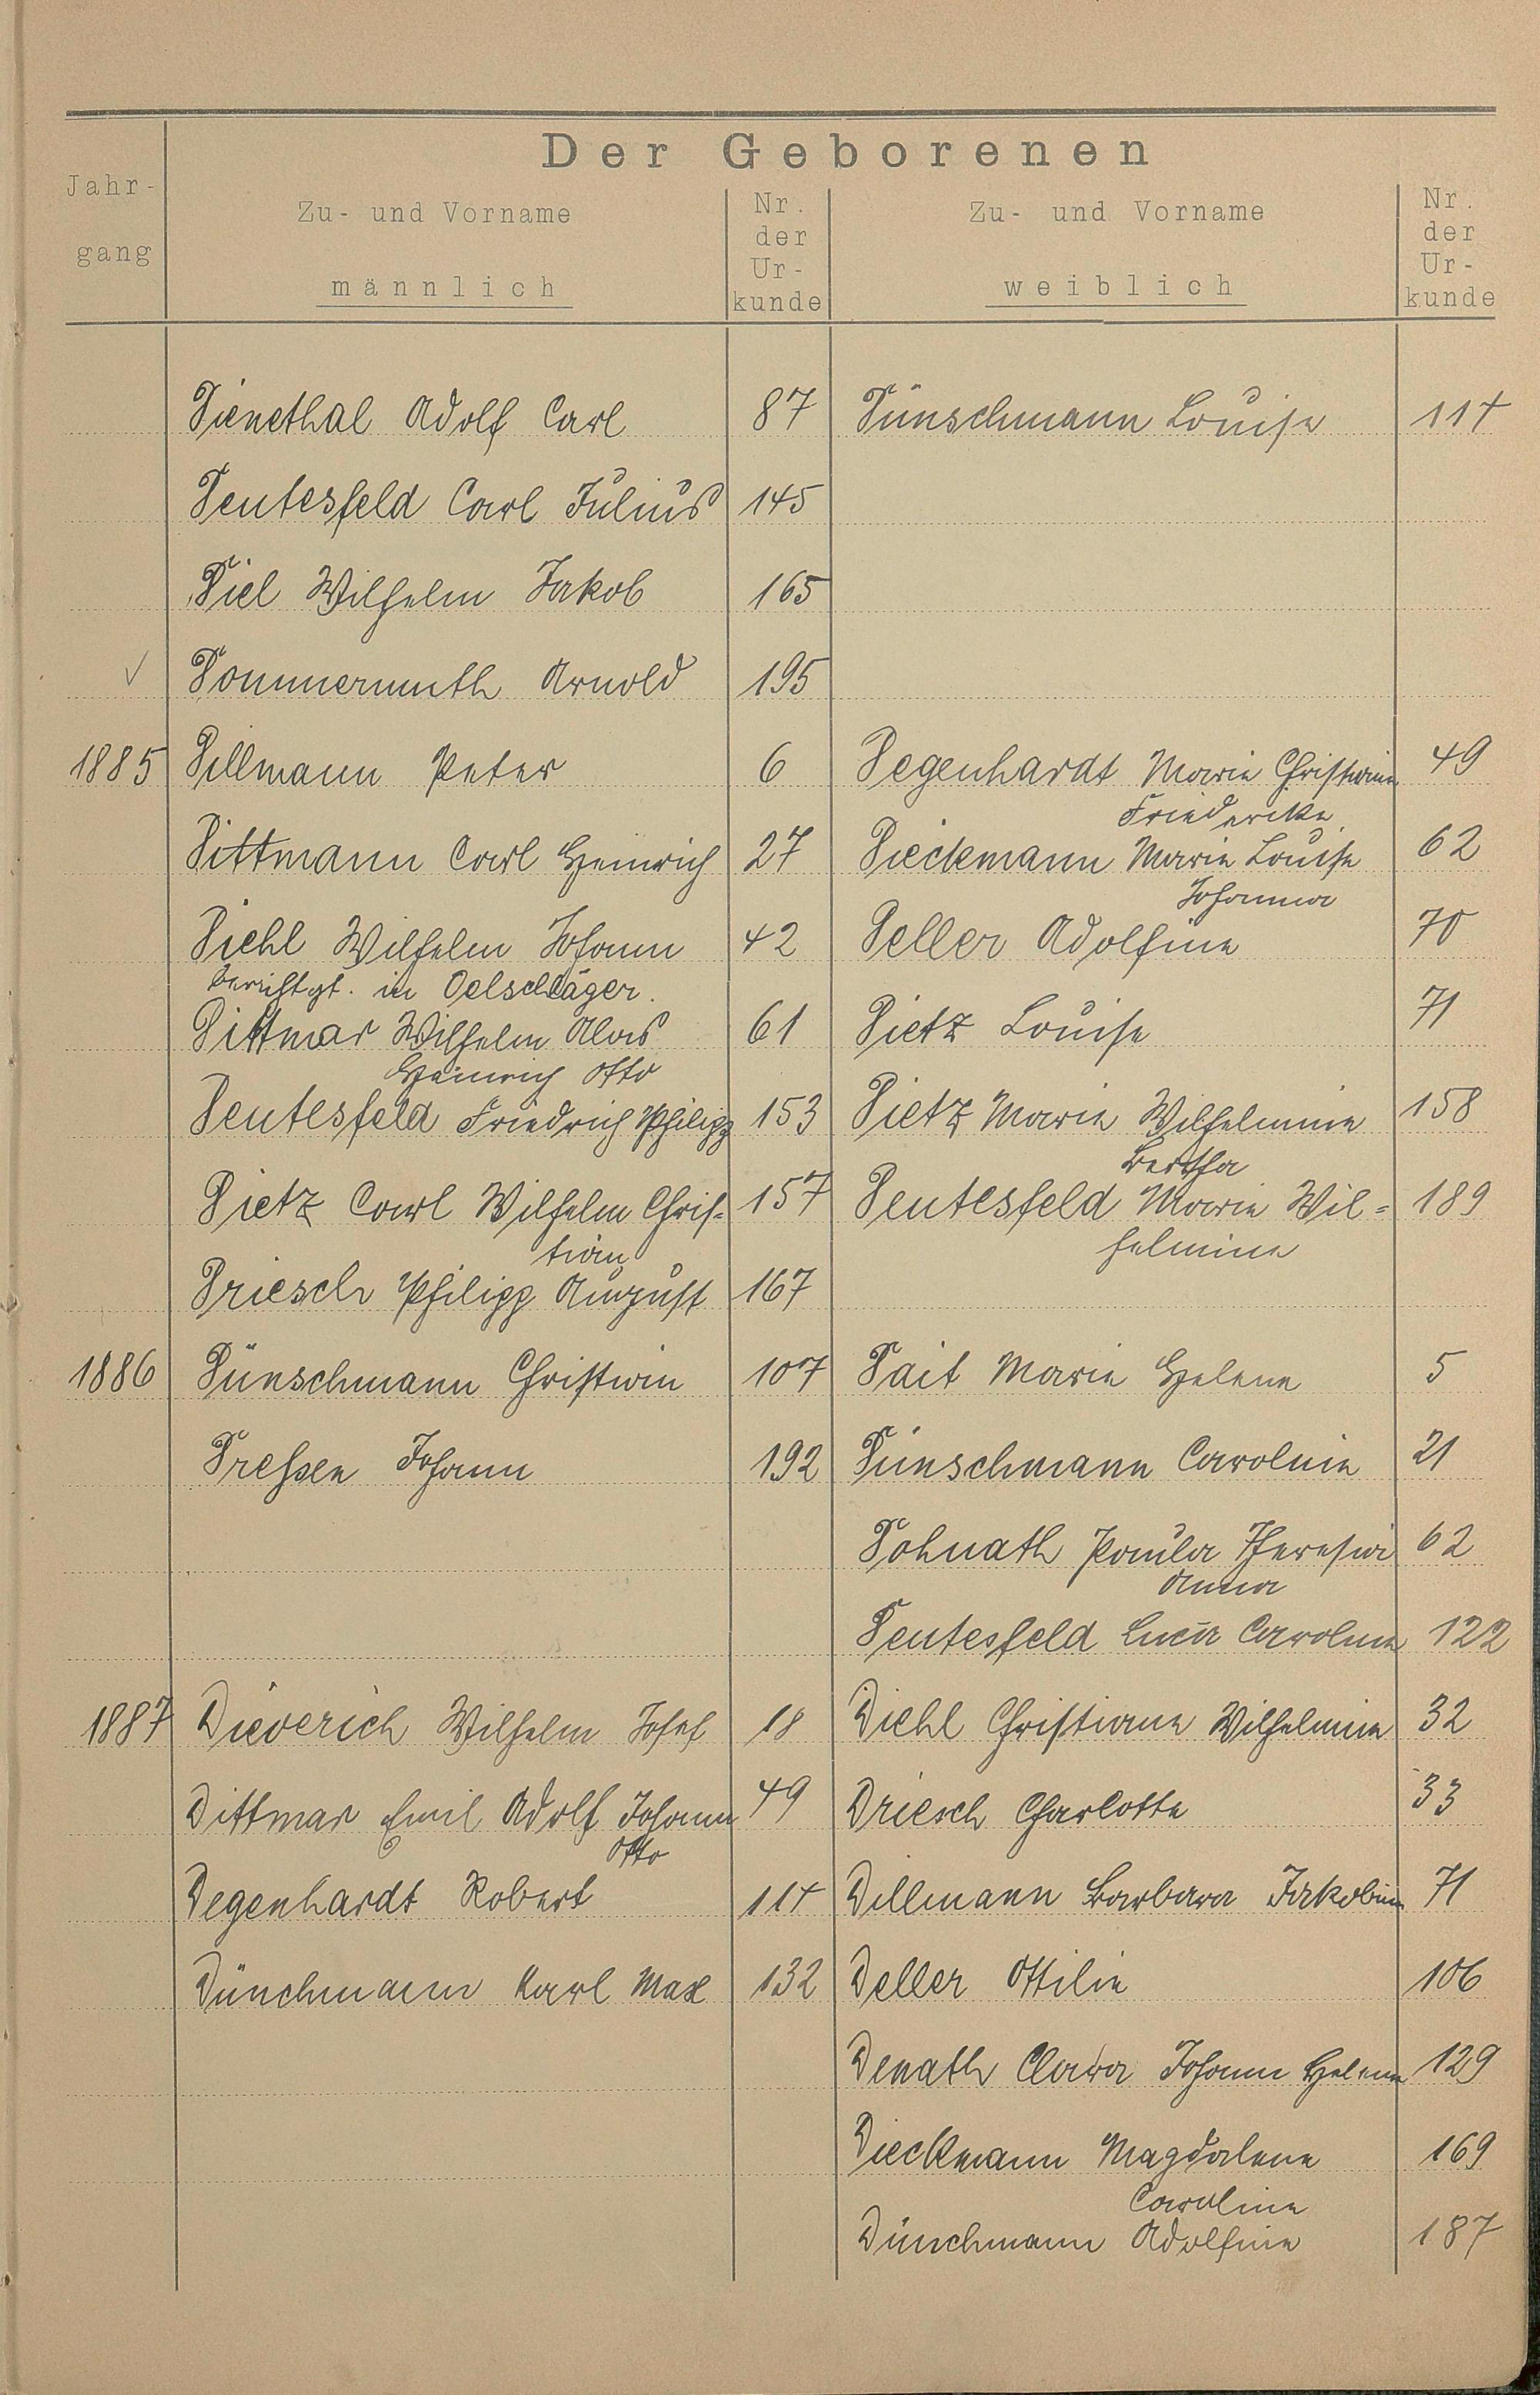 Der Geborenen
Jahr-
gang
Zu- und Vorname
männlich
Nr.
der
Ur-
kunde
Zu- und Vorname
weiblich
Nr.
der
Ur-
kunde
Dienethal Adolf Carl 87 Dünschmann Louise 114
Deutesfeld Carl Julius 145
Diel Wilhelm Jakob 165
✓ Dommermuth Arnold 195
1885 Dillmann Peter 6 Degenhardt Marie Christiane 49
Friedericke
Dittmann Carl Heinrich 27 Dieckmann Marie Louise 62
Johanna
Diehl Wilhelm Johann 42 Deller Adolfine 70
berichtgt. in Oelschläger.
Dittmar Wilhelm Alois 61 Dietz Louise 71
Heinrich Otto
Deutesfeld Friedrich Philipp 153 Dietz Marie Wilhelmine 158
Bertha
Dietz Carl Wilhelm Chris- 157 Deutesfeld Marie Wil= 189
tian
helmine
Driesch Philipp August 167
1886 Dünschmann Christian 107 Dait Marie Helene 5
Dreßen Johann 192 Dünschmann Caroline 21
Dohnath Paula Theresia 62
Anna
Deutesfeld Lucia Caroline 122
1887 Dieverich Wilhelm Josef 18 Diehl Christiane Wilhelmine 32
Dittmar Emil Adolf Johann 49 Driesch Charlotte 33
Otto
Degenhardt Robert 114 Dillmann Barbara Jakobine 71
Dünchmann Karl Max 132 Deller Ottilie 106
Denath Clara Johann Helene 129
Dieckmann Magdalene 169
Caroline
Dünchmann Adolfine 187